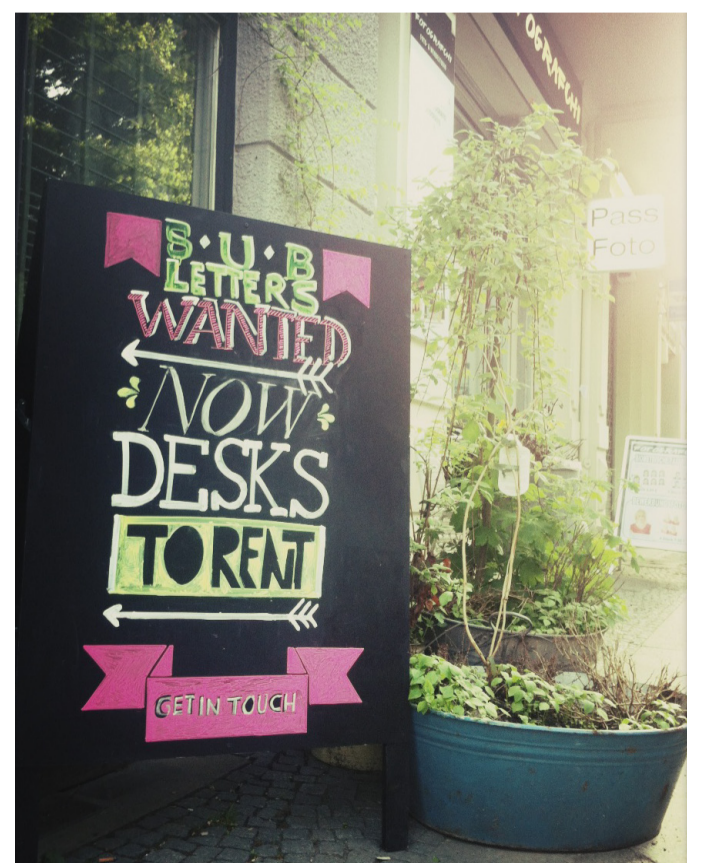 S·U·B
LETTERS
WANTED
NOW
DESKS
TO RENT
GET IN TOUCH
FOTOGRAFCHI
Pass
Foto